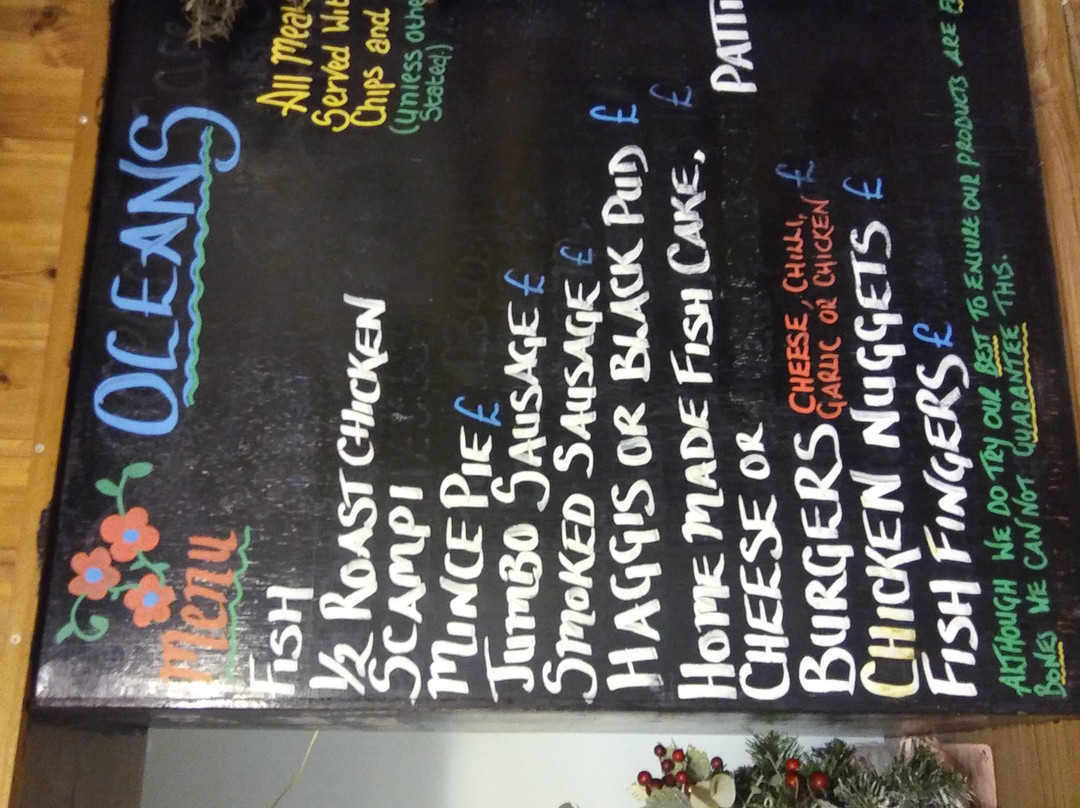 OLEANS
Menu
All Meals
Served Wit
Chips and
(Unless othe
Stated!)
FISH
1/2 ROAST CHICKEN
SCAMPI
MINCE PIE £
JUMBO SAUSAGE £
SMOKED SAUSAGE £
HAGGIS OR BLACK PUD £
HOME MADE FISH CAKE, £
CHEESE OR PATTI
BURGERS CHEESE, CHILLI, £
GARLIC OR CHICKEN
CHICKEN NUGGETS £
FISH FINGERS £
ALTHOUGH WE DO TRY OUR BEST TO ENSURE OUR PRODUCTS ARE F
BONES WE CAN NOT GUARANTEE THIS.